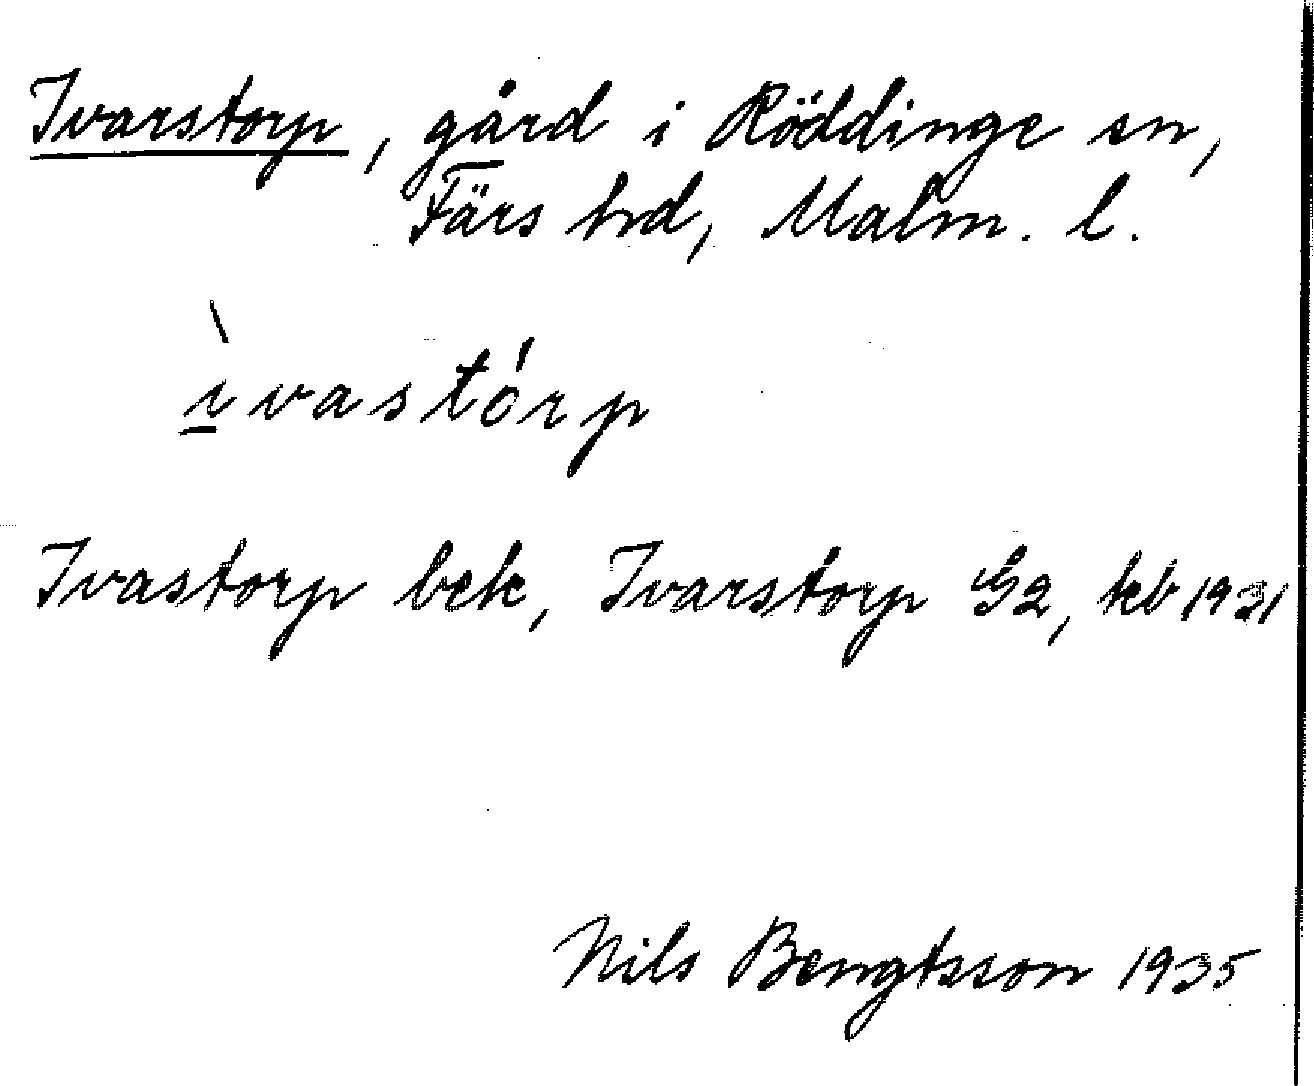 Ivarstorp, gård i Röddinge sn,
Färs hd, Malm. l.
ı̀vastórp
Ivastorp bek, Ivarstorp G2, kb 1931
Nils Bengtsson 1935